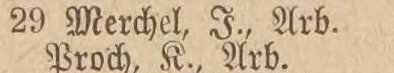 29 Merchel, J., Arb.
Proch, K., Arb.